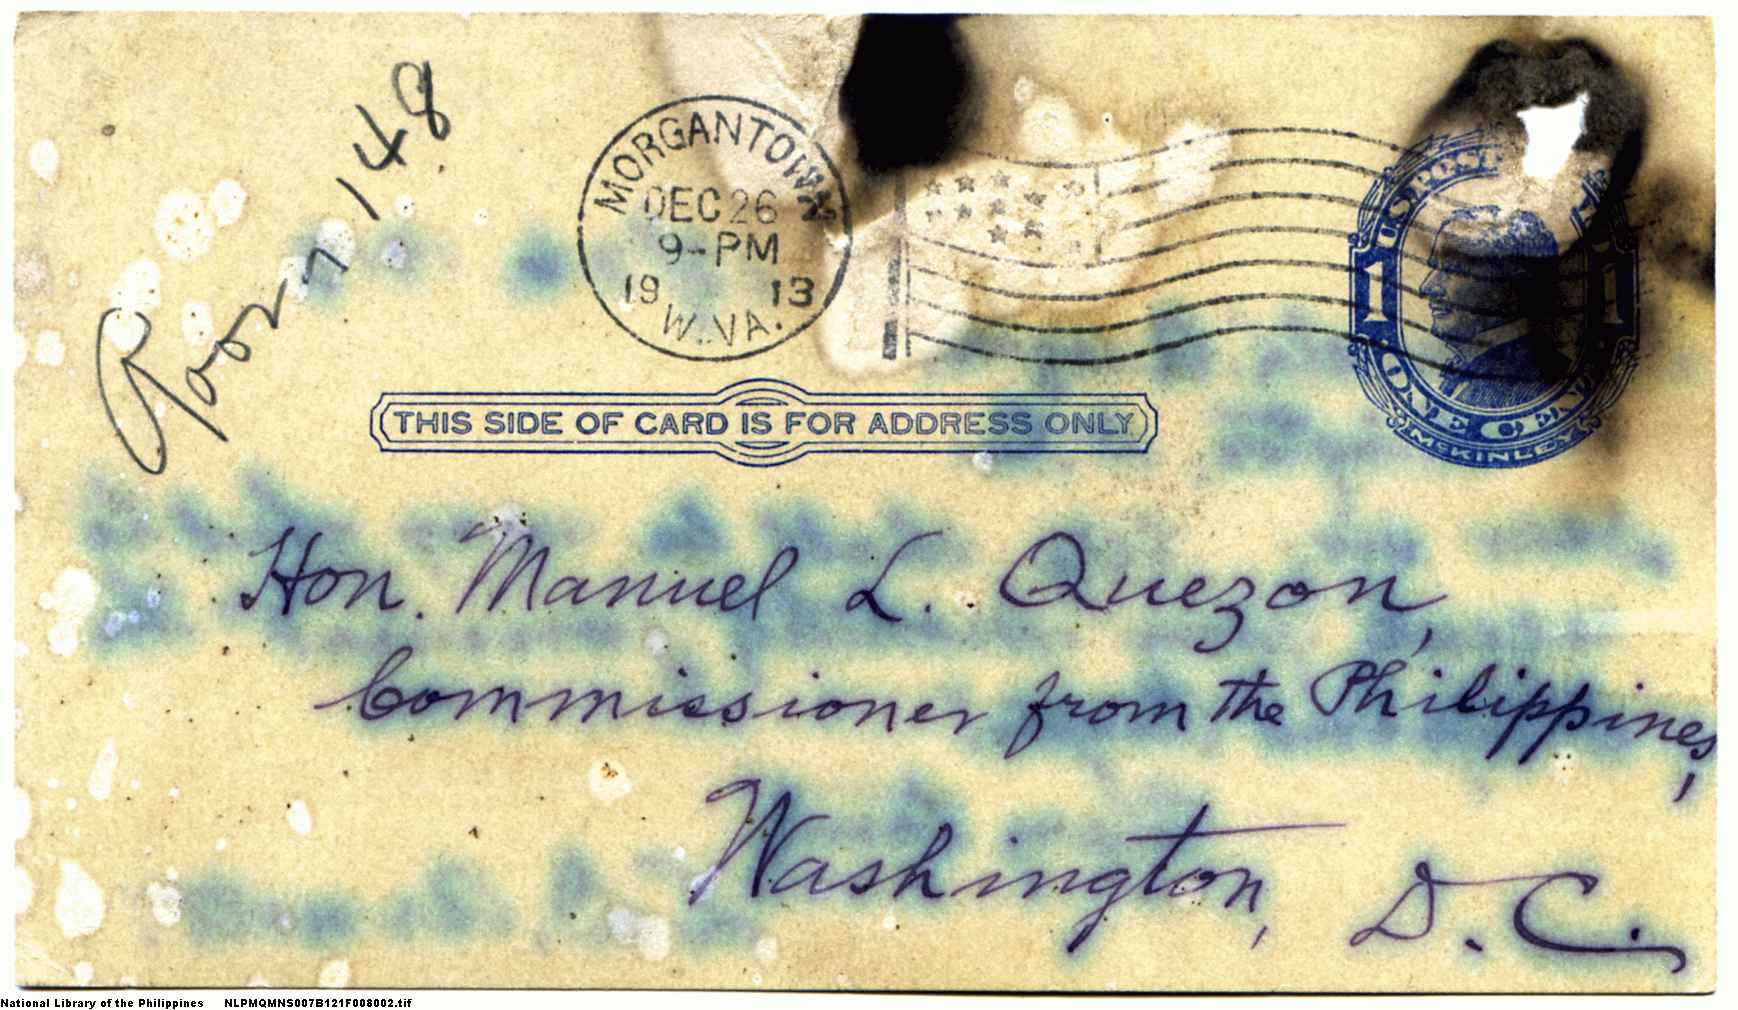 148
MORGANTOWN
DEC 26
9-PM
1913
W. VA.
U.S. POST
1 1
ONE CENT
McKINLEY
THIS SIDE OF CARD IS FOR ADDRESS ONLY
Hon. Manuel L. Quezon,
Commissioner from the Philippines,
Washington, D.C.
National Library of the Philippines NLPMQMNS007B121F008002.tif